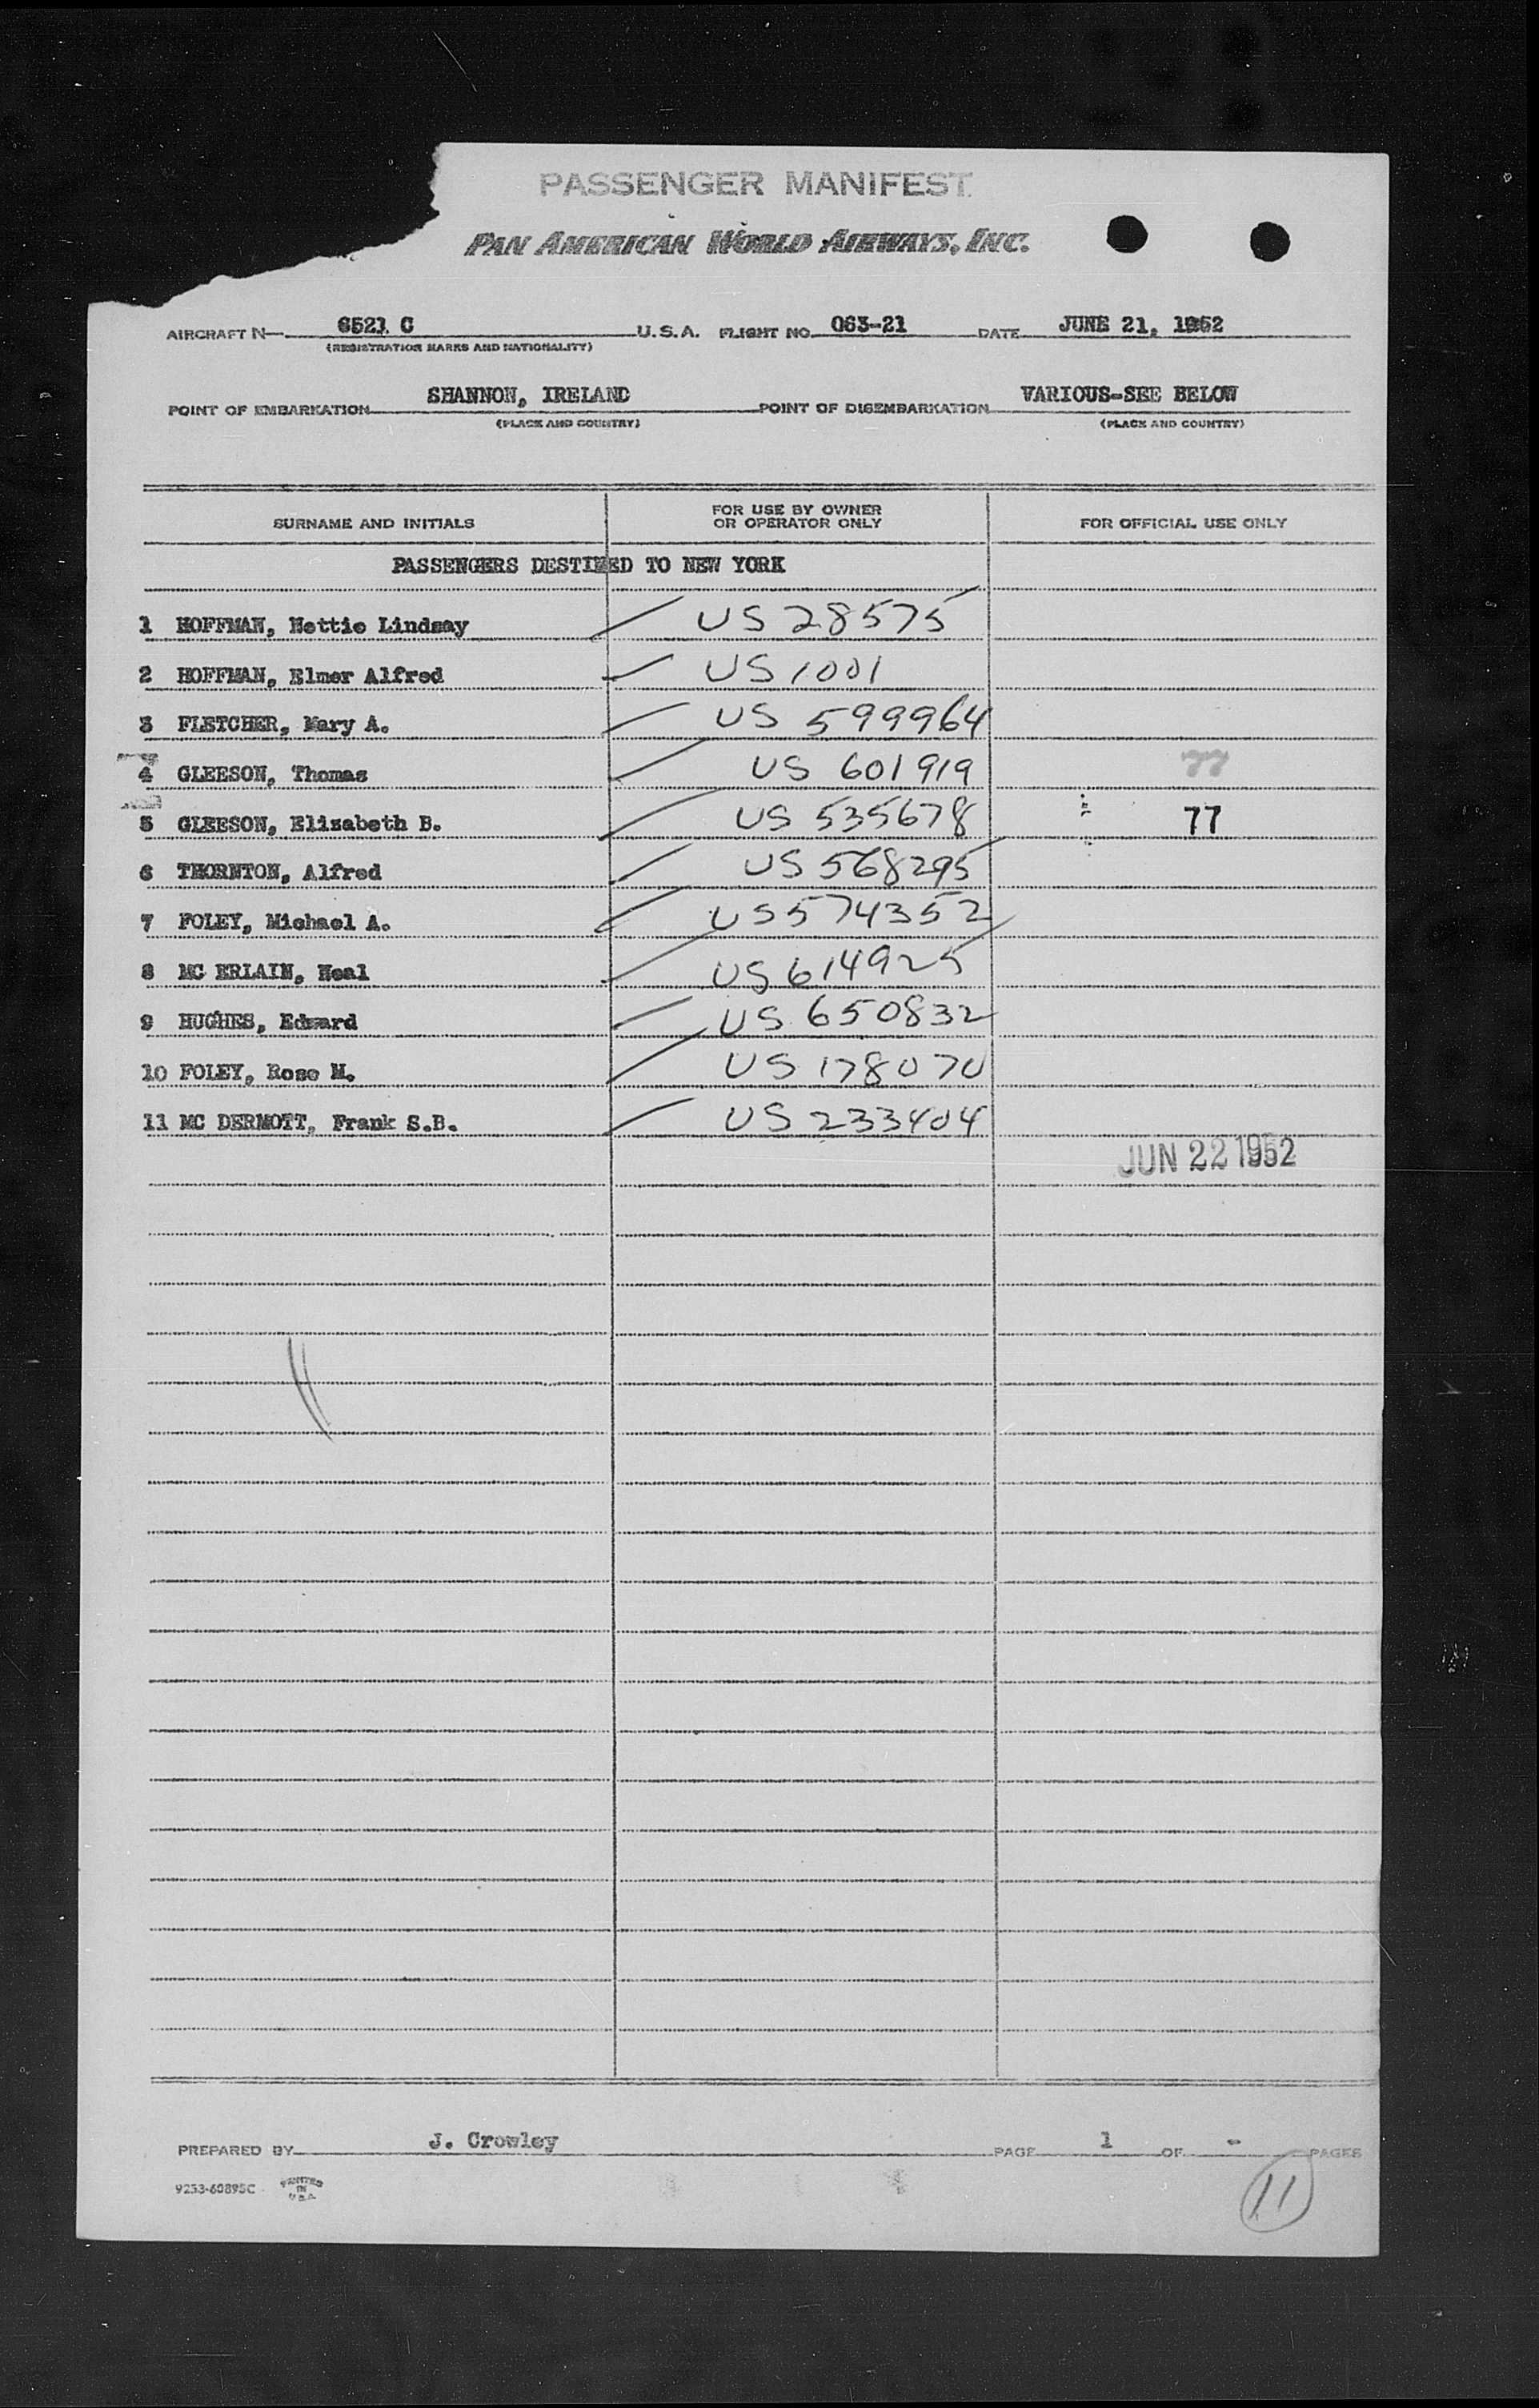 PASSENGER MANIFEST
PAN AMERICAN WORLD AIRWAYS, INC.
AIRCRAFT N— 6521 C U.S.A. FLIGHT NO. 063-21 DATE JUNE 21, 1952
(REGISTRATION MARKS AND NATIONALITY)
POINT OF EMBARKATION SHANNON, IRELAND POINT OF DISEMBARKATION VARIOUS-SEE BELOW
(PLACE AND COUNTRY) (PLACE AND COUNTRY)
SURNAME AND INITIALS FOR USE BY OWNER OR OPERATOR ONLY FOR OFFICIAL USE ONLY
PASSENGERS DESTINED TO NEW YORK
1 HOFFMAN, Nettie Lindsay US 28575
2 HOFFMAN, Elmer Alfred US 1001
3 FLETCHER, Mary A. US 599964
4 GLEESON, Thomas US 601919 77
5 GLEESON, Elizabeth B. US 535678 77
6 THORNTON, Alfred US 568295
7 FOLEY, Michael A. US 574352
8 MC ERLAIN, Neal US 614925
9 HUGHES, Edward US 650832
10 FOLEY, Rose M. US 178070
11 MC DERMOTT, Frank S.B. US 233404
JUN 22 1952
PREPARED BY J. Crowley PAGE 1 OF - PAGES
9253-60895C PRINTED IN U.S.A.
11